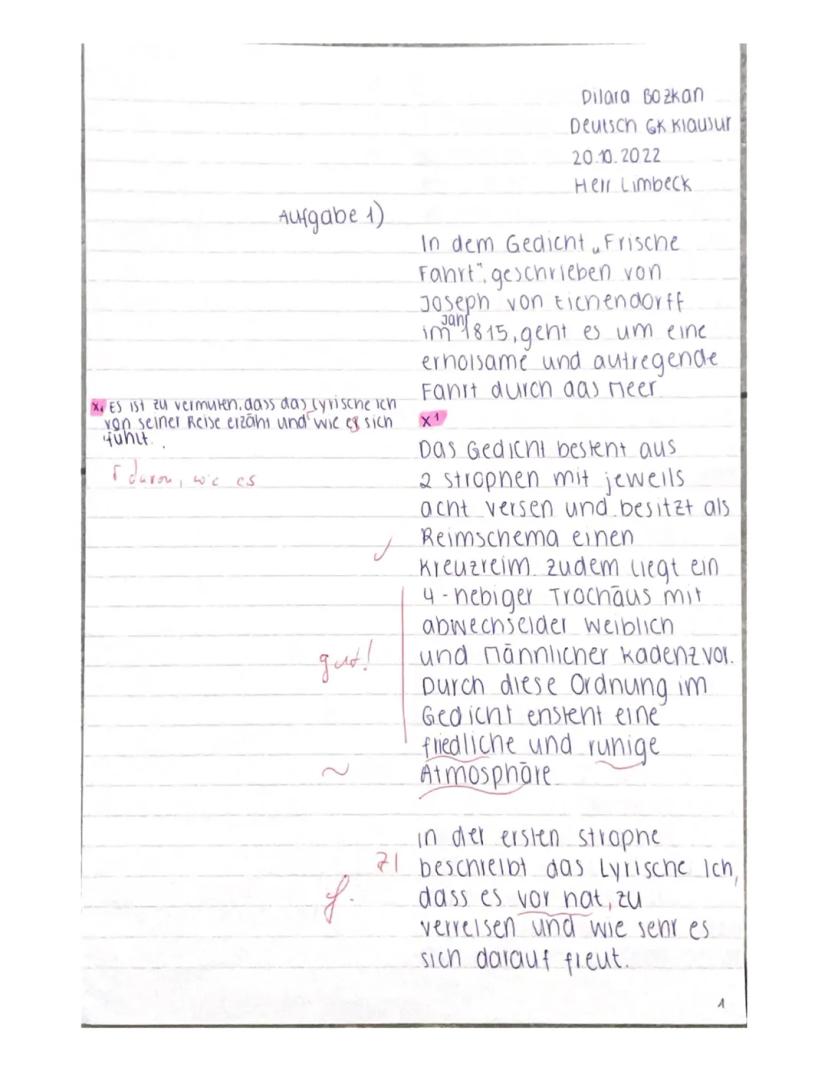 Dilara Bozkan
Deutsch GK Klausur
20.10.2022
Herr Limbeck
Aufgabe 1)
In dem Gedicht „Frische
Fahrt", geschrieben von
Joseph von Eichendorff
im Jahr 1815, geht es um eine
erholsame und aufregende
Fahrt durch das Meer
x1
x1 Es ist zu vermuten, dass das Lyrische Ich
von seiner Reise erzählt und wie es sich
fühlt.
Γ davon, wie es
Das Gedicht besteht aus
2 Strophen mit jeweils
acht Versen und besitzt als
Reimschema einen
✓
Kreuzreim. Zudem liegt ein
4-hebiger Trochäus mit
abwechselder Weiblich
gut!
und Männlicher Kadenz vor.
Durch diese Ordnung im
Gedicht ensteht eine
friedliche und ruhige
~
Atmosphäre
In der ersten Strophe
beschreibt das Lyrische Ich,
dass es vor hat, zu
verreisen und wie sehr es
sich darauf freut.
1